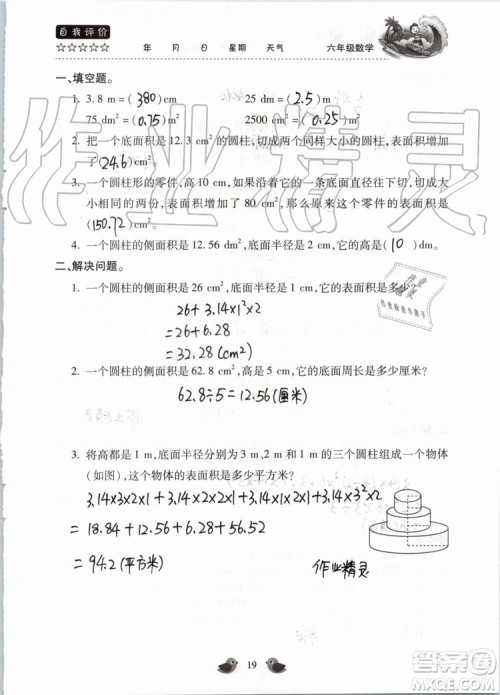 自我评价
☆☆☆☆☆ 年 月 日 星期 天气 六年级数学
一、填空题。
1. 3.8 m＝(380)cm 25 dm＝(2.5)m
75 dm²＝(0.75)m² 2500 cm²＝(0.25)m²
2. 把一个底面积是 12.3 cm²的圆柱,切成两个同样大小的圆柱,表面积增加
了(24.6)cm²。
3. 一个圆柱形的零件,高 10 cm,如果沿着它的一条底面直径往下切,切成大
小相同的两份,表面积增加了 80 cm²,那么原来这个零件的表面积是
(150.72)cm²。
4. 一个圆柱的侧面积是 12.56 dm²,底面半径是 2 dm,它的高是(10)dm。
二、解决问题。
1. 一个圆柱的侧面积是 26 cm²,底面半径是 1 cm,它的表面积是多少?
26+3.14×1²×2
=26+6.28
=32.28(cm²)
2. 一个圆柱的侧面积是 62.8 cm²,高是 5 cm,它的底面周长是多少厘米?
62.8÷5=12.56(厘米)
3. 将高都是 1 m,底面半径分别为 3 m、2 m 和 1 m 的三个圆柱组成一个物体
(如图),这个物体的表面积是多少平方米?
3.14×3×2×1+3.14×2×2×1+3.14×1×2×1+3.14×3²×2
=18.84+12.56+6.28+56.52
=94.2(平方米)
作业精灵
19
作业精灵
作业精灵
作业检查小助手
答案圈
MXQE.COM